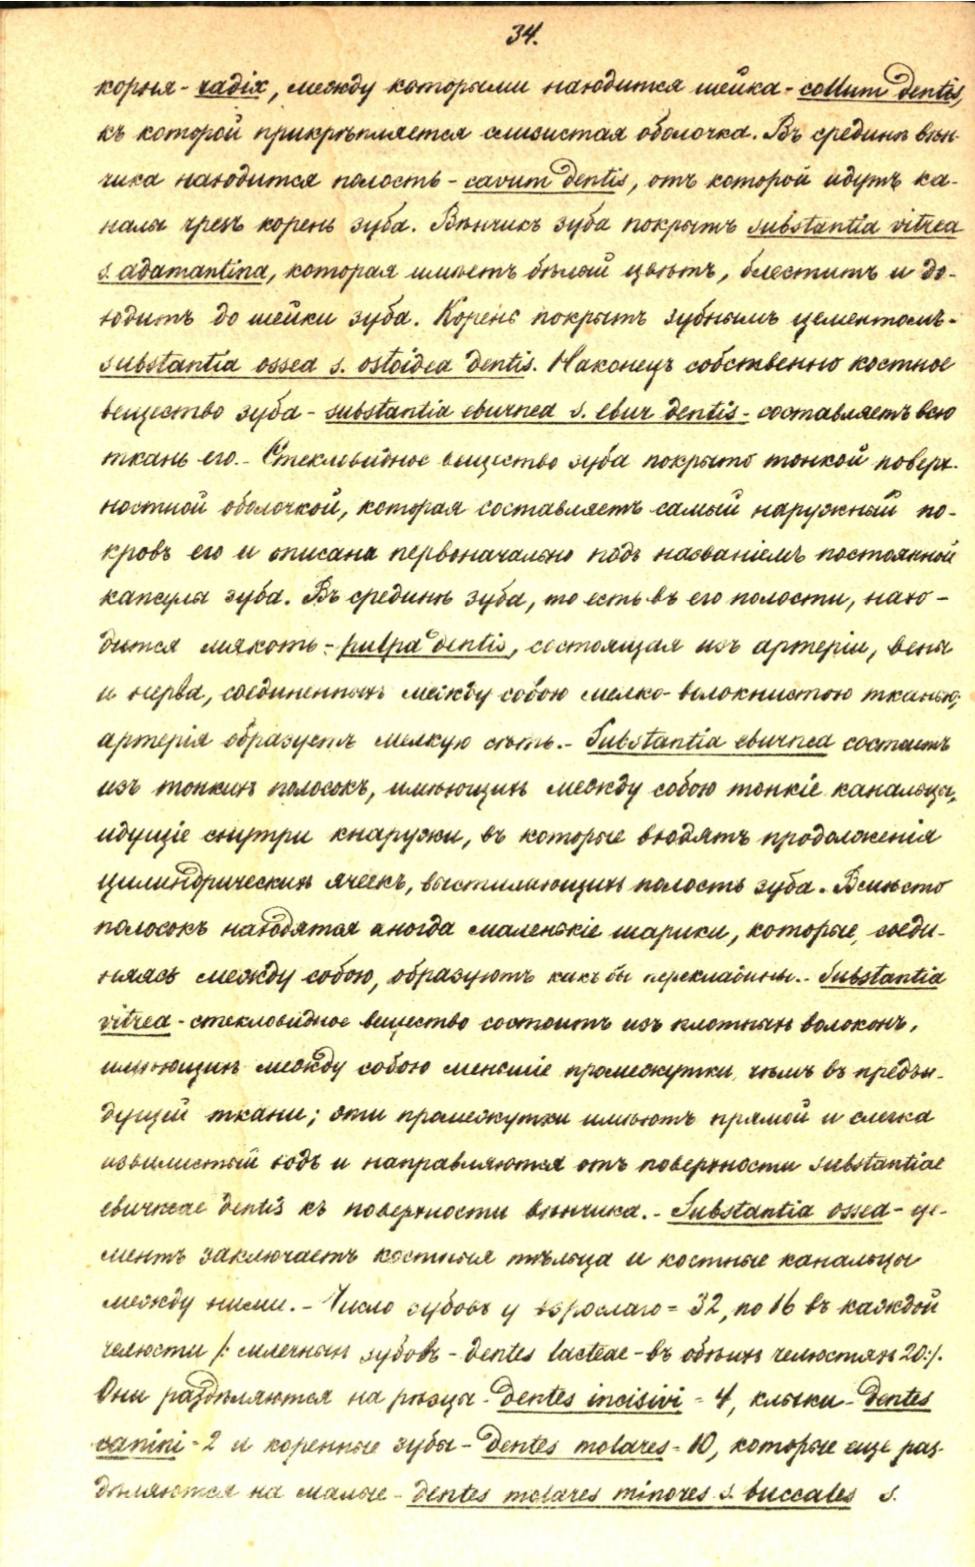 34.
корня - radix, между которыми находится шейка - collum dentis,
къ которой прикрѣпляется слизистая оболочка. Въ срединѣ вѣн-
чика находится полость - cavum dentis, отъ которой идутъ ка-
налы чрезъ корень зуба. Вѣнчикъ зуба покрытъ substantia vitrea
s. adamantina, которая имѣетъ бѣлый цвѣтъ, блеститъ и до-
ходитъ до шейки зуба. Корень покрытъ зубнымъ цементомъ -
substantia ossea s. ostoidea dentis. Наконецъ собственно костное
вещество зуба - substantia eburnea s. ebur dentis - составляетъ всю
ткань его. - Стекловидное вещество зуба покрыто тонкой поверх-
ностной оболочкой, которая составляетъ самый наружный по-
кровъ его и описана первоначально подъ названіемъ постоянной
капсулы зуба. Въ срединѣ зуба, то есть въ его полости, нахо-
дится мякоть - pulpa dentis, состоящая изъ артеріи, вены
и нерва, соединенныхъ между собою мелко-волокнистою тканью;
артерія образуетъ мелкую сѣть. - Substantia eburnea состоитъ
изъ тонкихъ полосокъ, имѣющихъ между собою тонкіе канальцы,
идущіе снутри кнаружи, въ которые входятъ продолженія
цилиндрическихъ ячеекъ, выстилающихъ полость зуба. Вмѣсто
полосокъ находятся иногда маленькіе шарики, которые, соеди-
няясь между собою, образуютъ какъ бы перекладины. - Substantia
vitrea - стекловидное вещество состоитъ изъ плотныхъ волоконъ,
имѣющихъ между собою меньшіе промежутки, чѣмъ въ преды-
дущей ткани; эти промежутки имѣютъ прямой и слегка
извилистый ходъ и направляются отъ поверхности substantiae
eburneae dentis къ поверхности вѣнчика. - Substantia ossea - це-
ментъ заключаетъ костныя тѣльца и костные канальцы
между ними. - Число зубовъ у взрослаго = 32, по 16 въ каждой
челюсти /: млечныхъ зубовъ - dentes lacteae - въ обѣихъ челюстяхъ 20:/.
Они раздѣляются на рѣзцы - dentes incisivi = 4, клыки - dentes
canini = 2 и коренные зубы - dentes molares = 10, которые еще раз-
дѣляются на малые - dentes molares minores s. buccales s.